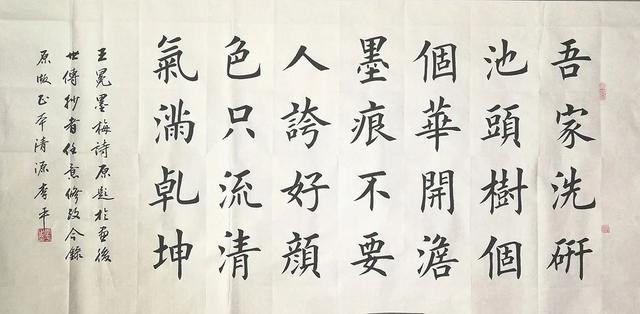 吾家洗研
池頭樹個
個華開澹
墨痕不要
人誇好顔
色只流清
氣滿乹坤
王冕墨梅詩原題於畫後
世傳抄者任意修改今錄
原版正本清源李平